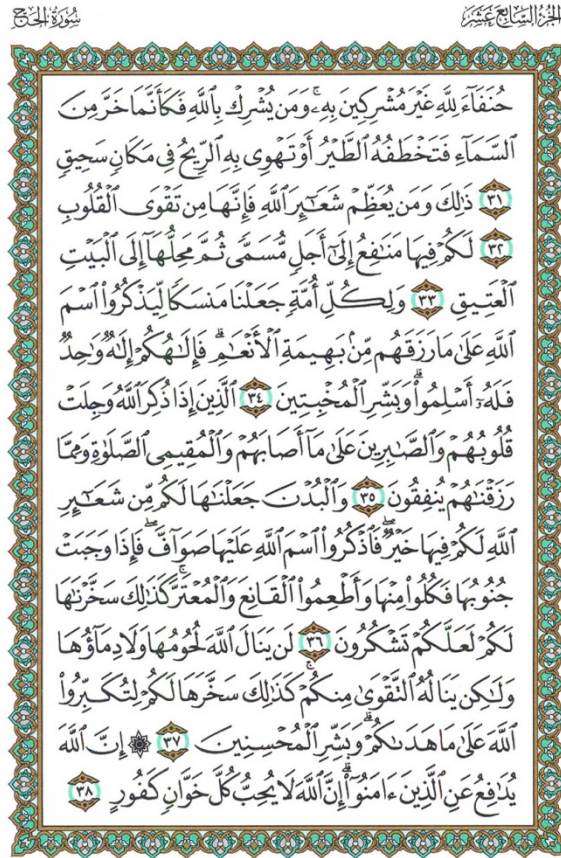 الجزء السابع عشر
سورة الحج
حُنَفَآءَ لِلَّهِ غَيْرَ مُشْرِكِينَ بِهِۦۚ وَمَن يُشْرِكْ بِٱللَّهِ فَكَأَنَّمَا خَرَّ مِنَ
ٱلسَّمَآءِ فَتَخْطَفُهُ ٱلطَّيْرُ أَوْ تَهْوِى بِهِ ٱلرِّيحُ فِى مَكَانٍ سَحِيقٍ
﴿٣١﴾ ذَٰلِكَ وَمَن يُعَظِّمْ شَعَـٰٓئِرَ ٱللَّهِ فَإِنَّهَا مِن تَقْوَى ٱلْقُلُوبِ
﴿٣٢﴾ لَكُمْ فِيهَا مَنَـٰفِعُ إِلَىٰٓ أَجَلٍ مُّسَمًّى ثُمَّ مَحِلُّهَآ إِلَى ٱلْبَيْتِ
ٱلْعَتِيقِ ﴿٣٣﴾ وَلِكُلِّ أُمَّةٍ جَعَلْنَا مَنسَكًا لِّيَذْكُرُوا۟ ٱسْمَ
ٱللَّهِ عَلَىٰ مَا رَزَقَهُم مِّنۢ بَهِيمَةِ ٱلْأَنْعَـٰمِۗ فَإِلَـٰهُكُمْ إِلَـٰهٌ وَٰحِدٌ
فَلَهُۥٓ أَسْلِمُوا۟ۗ وَبَشِّرِ ٱلْمُخْبِتِينَ ﴿٣٤﴾ ٱلَّذِينَ إِذَا ذُكِرَ ٱللَّهُ وَجِلَتْ
قُلُوبُهُمْ وَٱلصَّـٰبِرِينَ عَلَىٰ مَآ أَصَابَهُمْ وَٱلْمُقِيمِى ٱلصَّلَوٰةِ وَمِمَّا
رَزَقْنَـٰهُمْ يُنفِقُونَ ﴿٣٥﴾ وَٱلْبُدْنَ جَعَلْنَـٰهَا لَكُم مِّن شَعَـٰٓئِرِ
ٱللَّهِ لَكُمْ فِيهَا خَيْرٌۖ فَٱذْكُرُوا۟ ٱسْمَ ٱللَّهِ عَلَيْهَا صَوَآفَّۖ فَإِذَا وَجَبَتْ
جُنُوبُهَا فَكُلُوا۟ مِنْهَا وَأَطْعِمُوا۟ ٱلْقَانِعَ وَٱلْمُعْتَرَّۚ كَذَٰلِكَ سَخَّرْنَـٰهَا
لَكُمْ لَعَلَّكُمْ تَشْكُرُونَ ﴿٣٦﴾ لَن يَنَالَ ٱللَّهَ لُحُومُهَا وَلَا دِمَآؤُهَا
وَلَـٰكِن يَنَالُهُ ٱلتَّقْوَىٰ مِنكُمْۚ كَذَٰلِكَ سَخَّرَهَا لَكُمْ لِتُكَبِّرُوا۟
ٱللَّهَ عَلَىٰ مَا هَدَىٰكُمْۗ وَبَشِّرِ ٱلْمُحْسِنِينَ ﴿٣٧﴾ ۞ إِنَّ ٱللَّهَ
يُدَٰفِعُ عَنِ ٱلَّذِينَ ءَامَنُوٓا۟ۗ إِنَّ ٱللَّهَ لَا يُحِبُّ كُلَّ خَوَّانٍ كَفُورٍ ﴿٣٨﴾